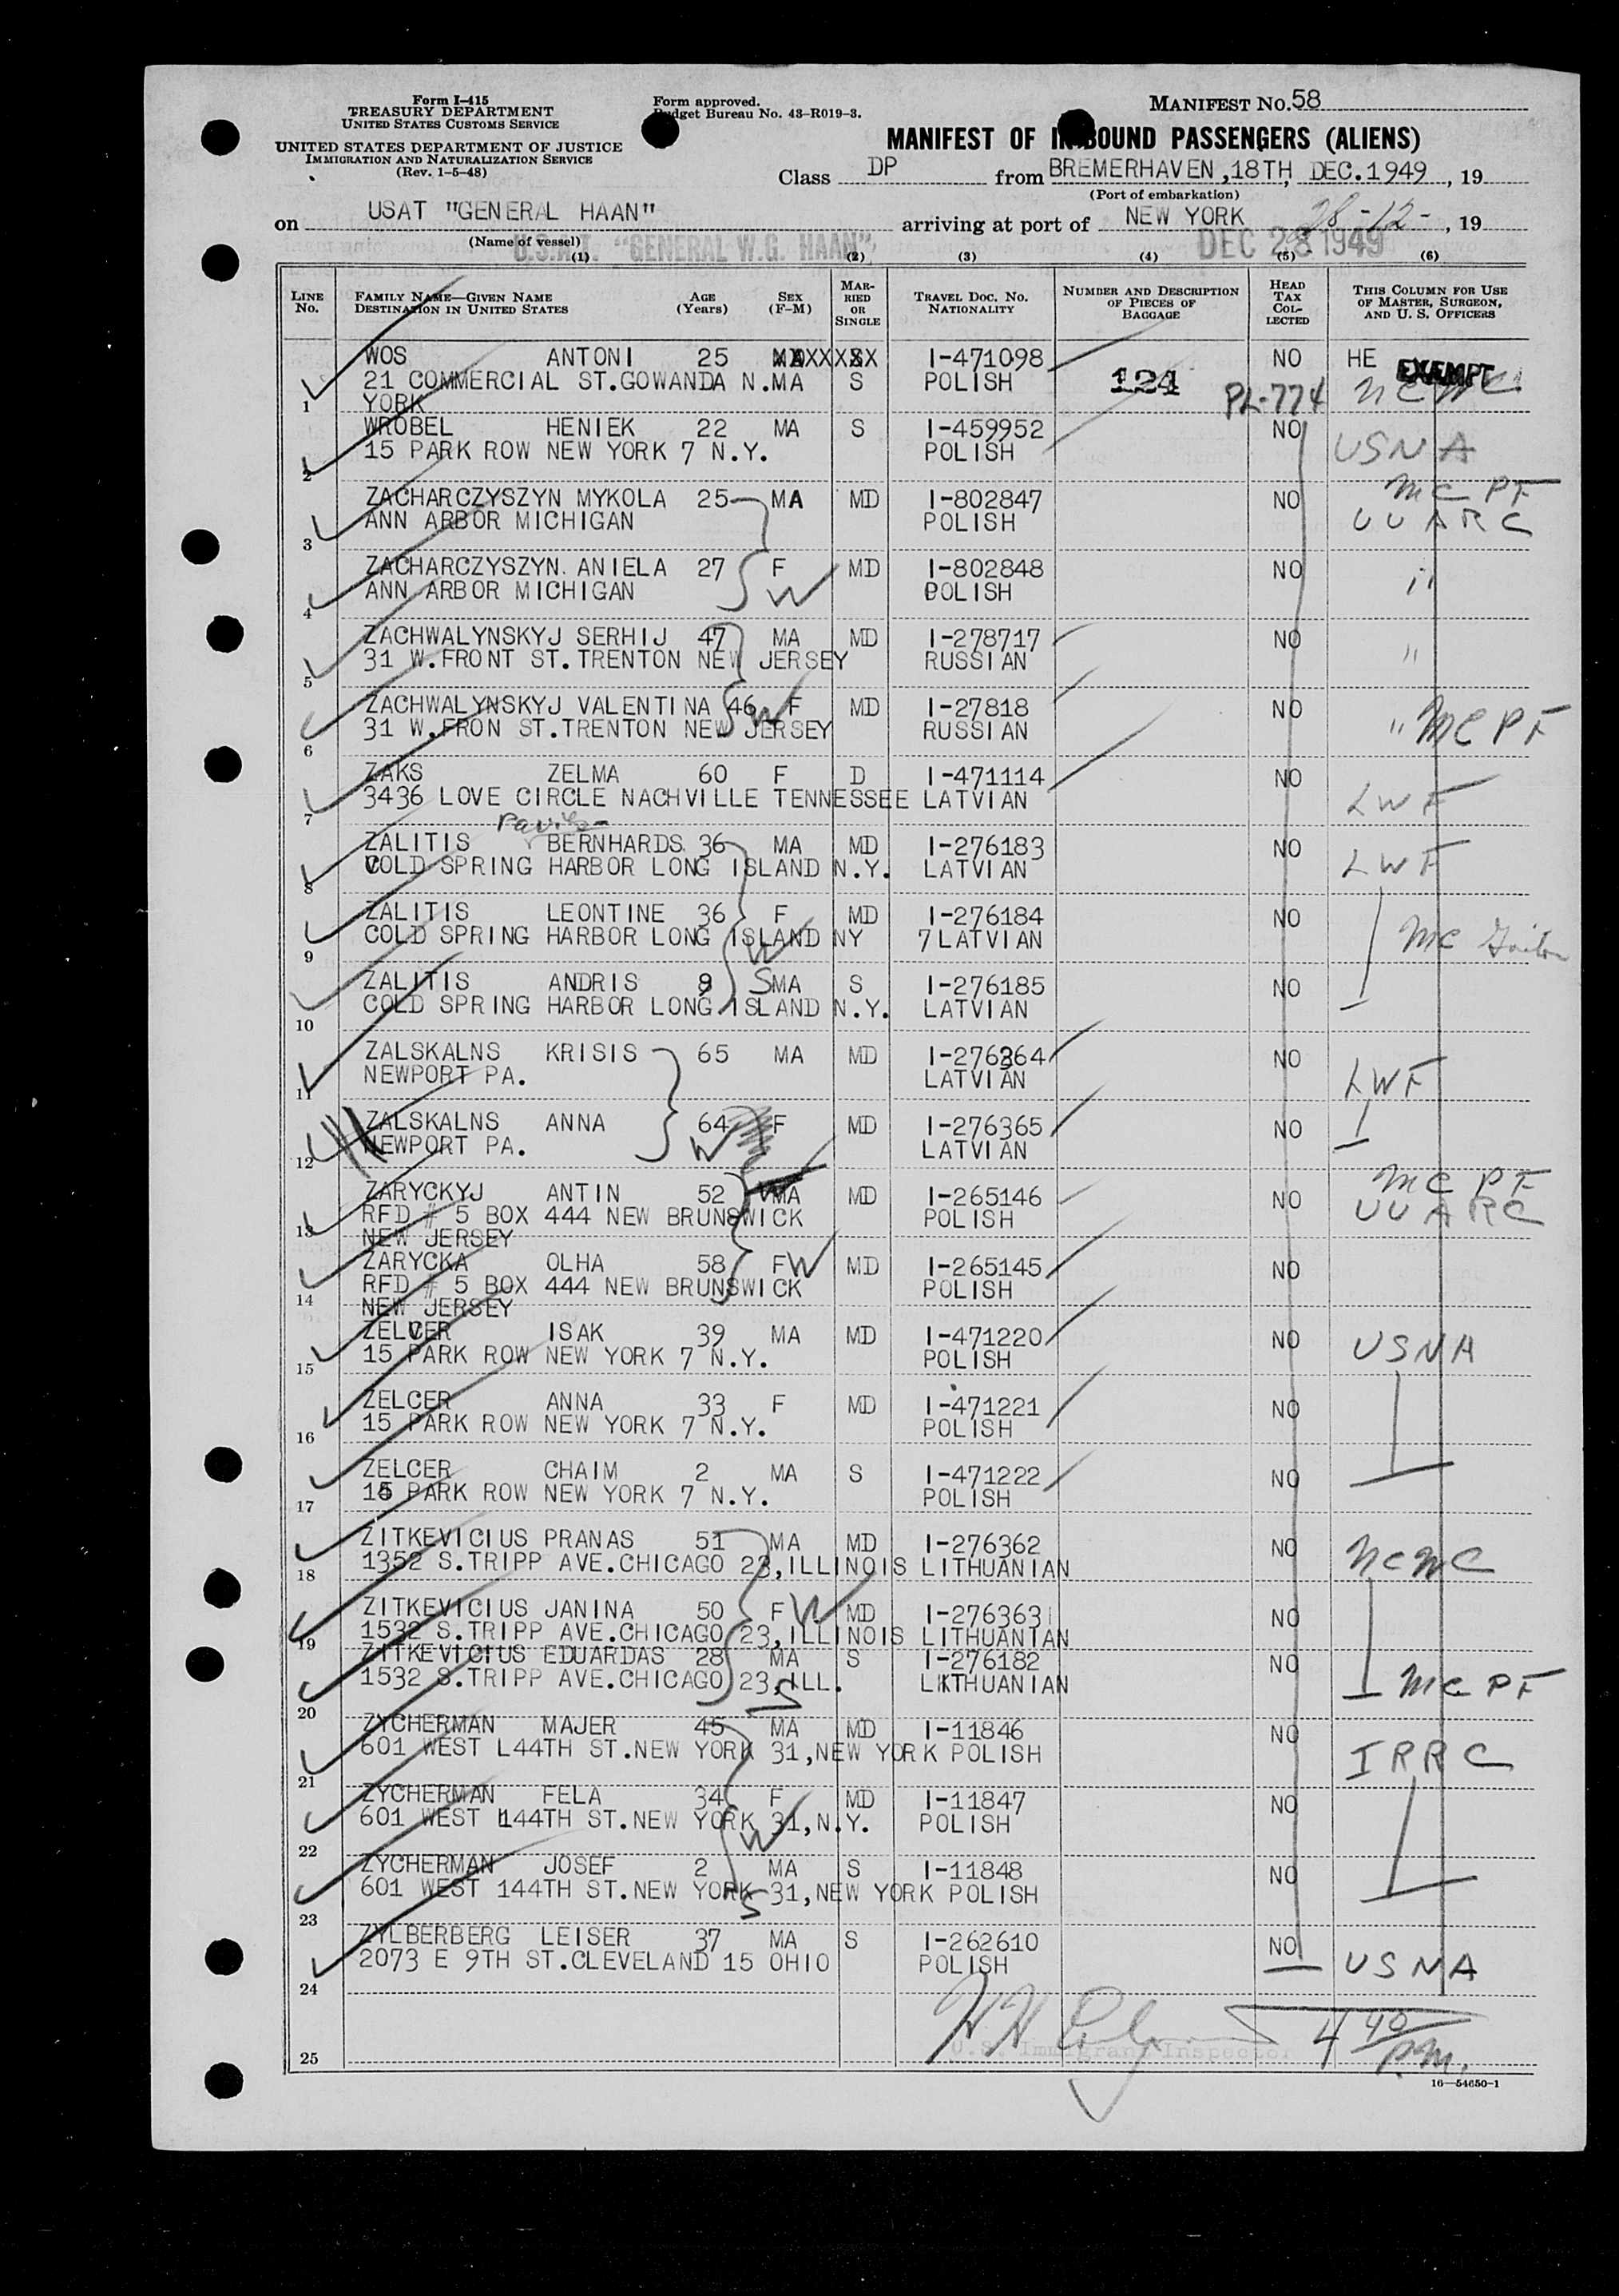 Form I-415
TREASURY DEPARTMENT
UNITED STATES CUSTOMS SERVICE
UNITED STATES DEPARTMENT OF JUSTICE
IMMIGRATION AND NATURALIZATION SERVICE
(Rev. 1-5-48)
Form approved.
Budget Bureau No. 43-R019-3.
MANIFEST NO. 58
MANIFEST OF INBOUND PASSENGERS (ALIENS)
Class DP from BREMERHAVEN, 18TH, DEC. 1949, 19
(Port of embarkation)
on USAT "GENERAL HAAN" arriving at port of NEW YORK 28-12-, 19
(Name of vessel)
U.S.A.T. "GENERAL W.G. HAAN" DEC 28 1949
(1) (2) (3) (4) (5) (6)
LINE No. FAMILY NAME—GIVEN NAME DESTINATION IN UNITED STATES AGE (Years) SEX (F-M) MARRIED OR SINGLE TRAVEL DOC. NO. NATIONALITY NUMBER AND DESCRIPTION OF PIECES OF BAGGAGE HEAD TAX COLLECTED THIS COLUMN FOR USE OF MASTER, SURGEON, AND U. S. OFFICERS
WOS ANTONI 25 I-471098 NO HE EXEMPT
1 21 COMMERCIAL ST.GOWANDA N.MA S POLISH 124 PL-774 NCWC
YORK
WROBEL HENIEK 22 MA S I-459952 NO USNA
2 15 PARK ROW NEW YORK 7 N.Y. POLISH
ZACHARCZYSZYN MYKOLA 25 MA MD I-802847 NO MC PF
3 ANN ARBOR MICHIGAN POLISH UUARC
ZACHARCZYSZYN. ANIELA 27 F MD I-802848 NO "
4 ANN ARBOR MICHIGAN W POLISH
ZACHWALYNSKYJ SERHIJ 47 MA MD I-278717 NO "
5 31 W.FRONT ST.TRENTON NEW JERSEY RUSSIAN
ZACHWALYNSKYJ VALENTINA 46 F MD I-27818 NO " MC PF
6 31 W.FRON ST.TRENTON NEW JERSEY W RUSSIAN
ZAKS ZELMA 60 F D I-471114 NO LWF
7 3436 LOVE CIRCLE NACHVILLE TENNESSEE LATVIAN
ZALITIS BERNHARDS 36 MA MD I-276183 NO LWF
8 COLD SPRING HARBOR LONG ISLAND N.Y. LATVIAN
ZALITIS LEONTINE 36 F MD I-276184 NO MC
9 COLD SPRING HARBOR LONG ISLAND NY 7 LATVIAN W
ZALITIS ANDRIS 9 S MA S I-276185 NO
10 COLD SPRING HARBOR LONG ISLAND N.Y. LATVIAN
ZALSKALNS KRISIS 65 MA MD I-276364 NO LWF
11 NEWPORT PA. LATVIAN
ZALSKALNS ANNA 64 F MD I-276365 NO
12 NEWPORT PA. W LATVIAN
ZARYCKYJ ANTIN 52 MA MD I-265146 NO MC PF
13 RFD # 5 BOX 444 NEW BRUNSWICK POLISH UUARC
NEW JERSEY
ZARYCKA OLHA 58 F W MD I-265145 NO
14 RFD # 5 BOX 444 NEW BRUNSWICK POLISH
NEW JERSEY
ZELCER ISAK 39 MA MD I-471220 NO USNA
15 15 PARK ROW NEW YORK 7 N.Y. POLISH
ZELCER ANNA 33 F MD I-471221 NO
16 15 PARK ROW NEW YORK 7 N.Y. POLISH
ZELCER CHAIM 2 MA S I-471222 NO
17 15 PARK ROW NEW YORK 7 N.Y. POLISH
ZITKEVICIUS PRANAS 51 MA MD I-276362 NO NCWC
18 1352 S.TRIPP AVE.CHICAGO 23,ILLINOIS LITHUANIAN
ZITKEVICIUS JANINA 50 F W MD I-276363 NO
19 1532 S.TRIPP AVE.CHICAGO 23,ILLINOIS LITHUANIAN
ZITKEVICIUS EDUARDAS 28 MA S I-276182 NO
20 1532 S.TRIPP AVE.CHICAGO 23,ILL. S LITHUANIAN MC PF
ZYCHERMAN MAJER 45 MA MD I-11846 NO
21 601 WEST L44TH ST.NEW YORK 31,NEW YORK POLISH IRRC
ZYCHERMAN FELA 34 F MD I-11847 NO
22 601 WEST 144TH ST.NEW YORK 31,N.Y. W POLISH
ZYCHERMAN JOSEF 2 MA S I-11848 NO
23 601 WEST 144TH ST.NEW YORK 31,NEW YORK POLISH S
ZYLBERBERG LEISER 37 MA S I-262610 NO USNA
24 2073 E 9TH ST.CLEVELAND 15 OHIO POLISH
25 U.S. Immigrant Inspector 4 40 P.M.
16—54650-1